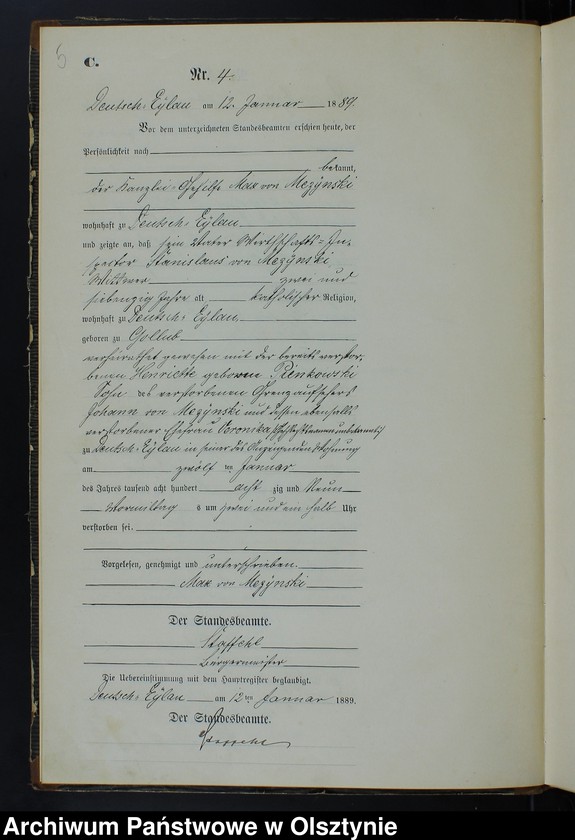 C.
Nr. 4.
Deutsch-Eylau am 12. Januar 1889.
Vor dem unterzeichneten Standesbeamten erschien heute, der
Persönlichkeit nach
bekannt,
der Kanzlei-Gehilfe Max von Mezÿnski
wohnhaft zu Deutsch-Eylau
und zeigte an, daß sein Vater Wirthschafts-In-
spector Stanislaus von Mezÿnski
Wittwer zwei und
siebenzig Jahre alt katholischer Religion,
wohnhaft zu Deutsch-Eylau
geboren zu Gollub
verheirathet gewesen mit der bereits verstor-
benen Henriette geborenen Rienkowski
Sohn des verstorbenen Grenzaufsehers
Johann von Mezÿnski und dessen ebenfalls
verstorbener Ehefrau Veronika (Geschlechtsnamen unbekannt)
zu Deutsch-Eylau in seiner des Anzeigenden Wohnung
am zwölf ten Januar
des Jahres tausend acht hundert acht zig und Neun
Vormittag s um zwei und ein halb Uhr
verstorben sei.
Vorgelesen, genehmigt und unterschrieben.
Max von Mezÿnski
Der Standesbeamte.
Staffehl
Bürgermeister
Die Uebereinstimmung mit dem Hauptregister beglaubigt.
Deutsch-Eylau am 12ten Januar 1889.
Der Standesbeamte.
Staffehl
Archiwum Państwowe w Olsztynie